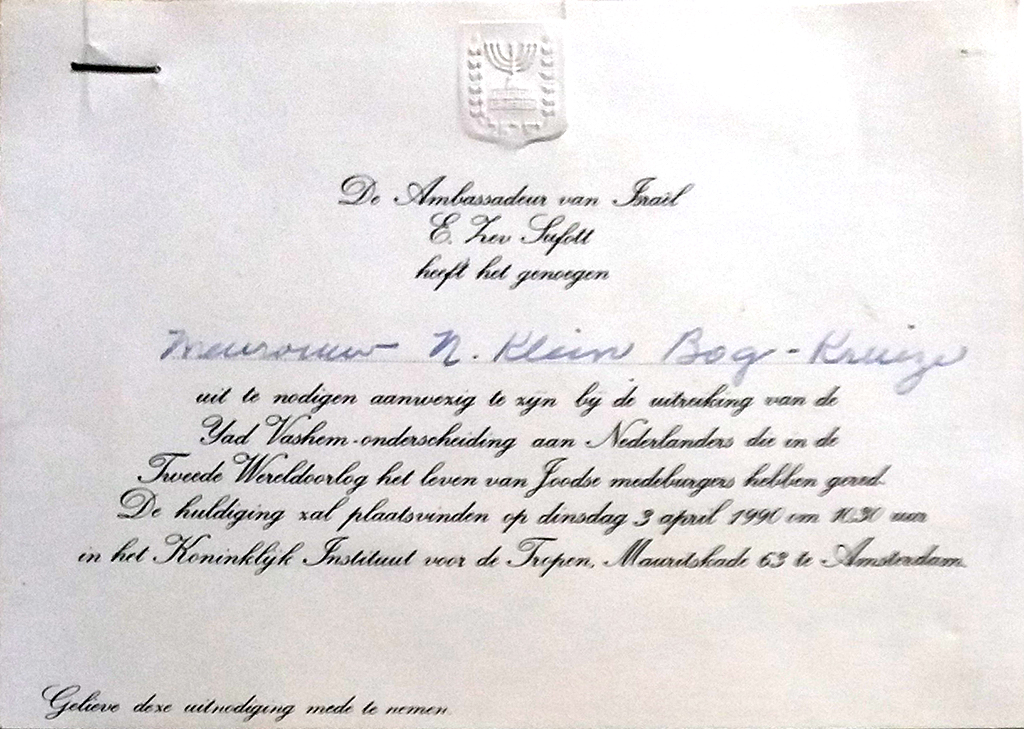 De Ambassadeur van Israël
E. Zev Sufott
heeft het genoegen
Mevrouw N. Klein Bog - Kreuze
uit te nodigen aanwezig te zijn bij de uitreiking van de
Yad Vashem-onderscheiding aan Nederlanders die in de
Tweede Wereldoorlog het leven van Joodse medeburgers hebben gered.
De huldiging zal plaatsvinden op dinsdag 3 april 1990 om 10.30 uur
in het Koninklijk Instituut voor de Tropen, Mauritskade 63 te Amsterdam.
Gelieve deze uitnodiging mede te nemen.